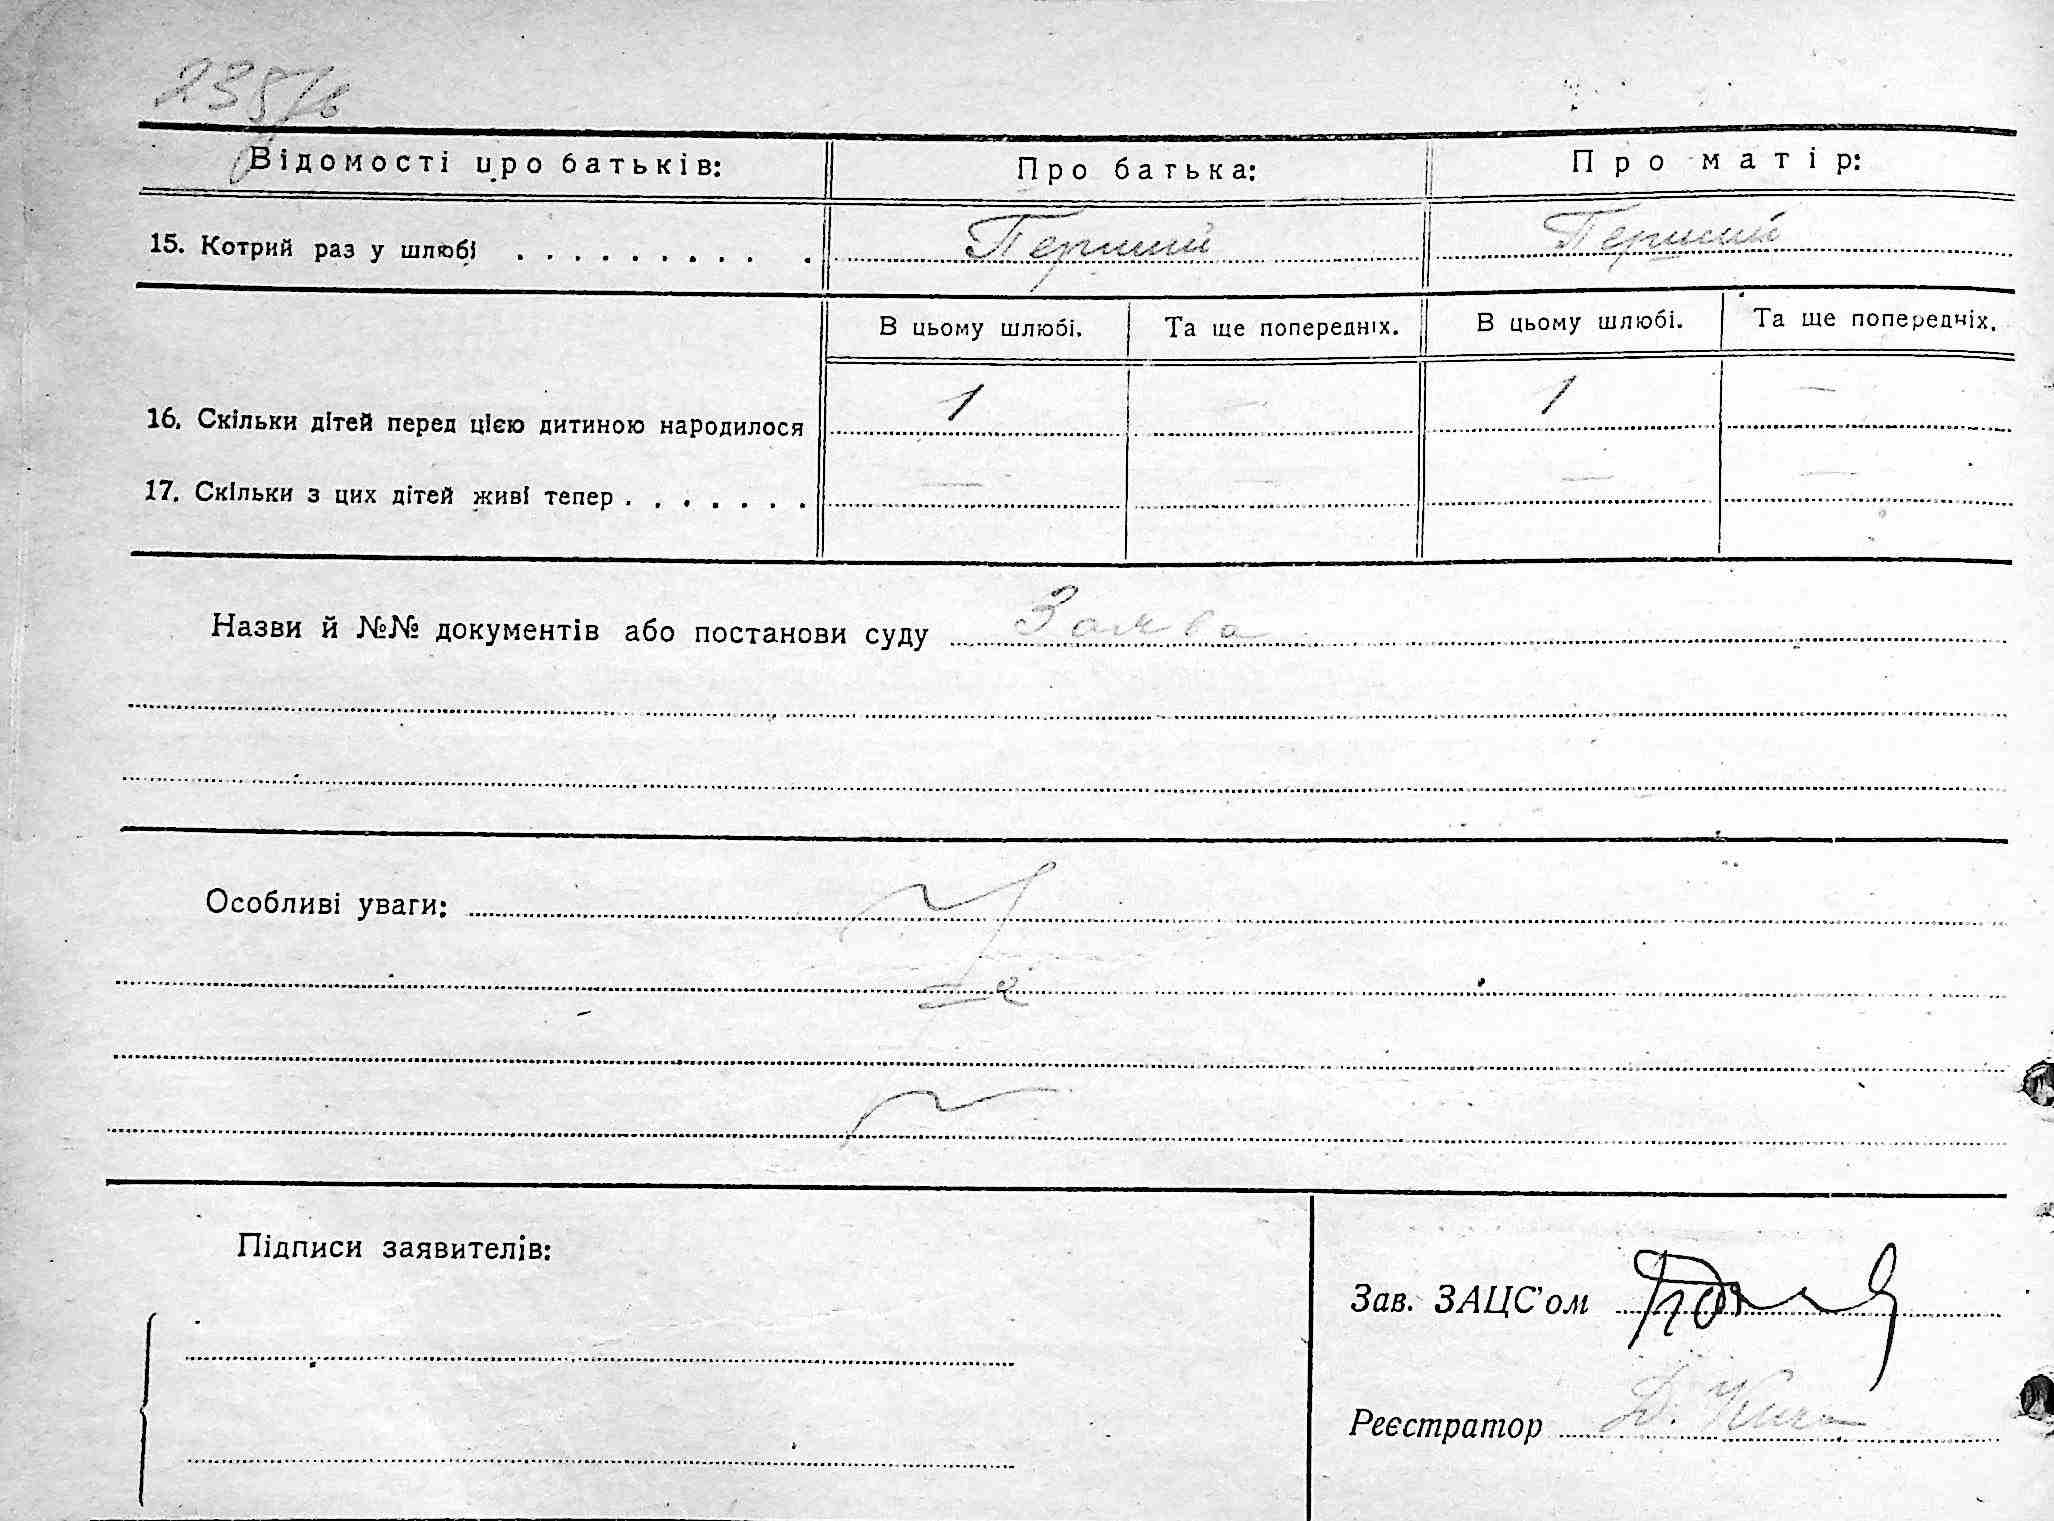 235/в
Відомості про батьків: Про батька: Про матір:
15. Котрий раз у шлюбі . . . . . . . . . . Перший Перший
В цьому шлюбі. Та ще попередніх. В цьому шлюбі. Та ще попередніх.
16. Скільки дітей перед цією дитиною народилося 1 — 1 —
17. Скільки з цих дітей живі тепер . . . . . . . — — — —
Назви й №№ документів або постанови суду Заява
Особливі уваги:
Підписи заявителів:
Зав. ЗАЦС'ом
Реєстратор